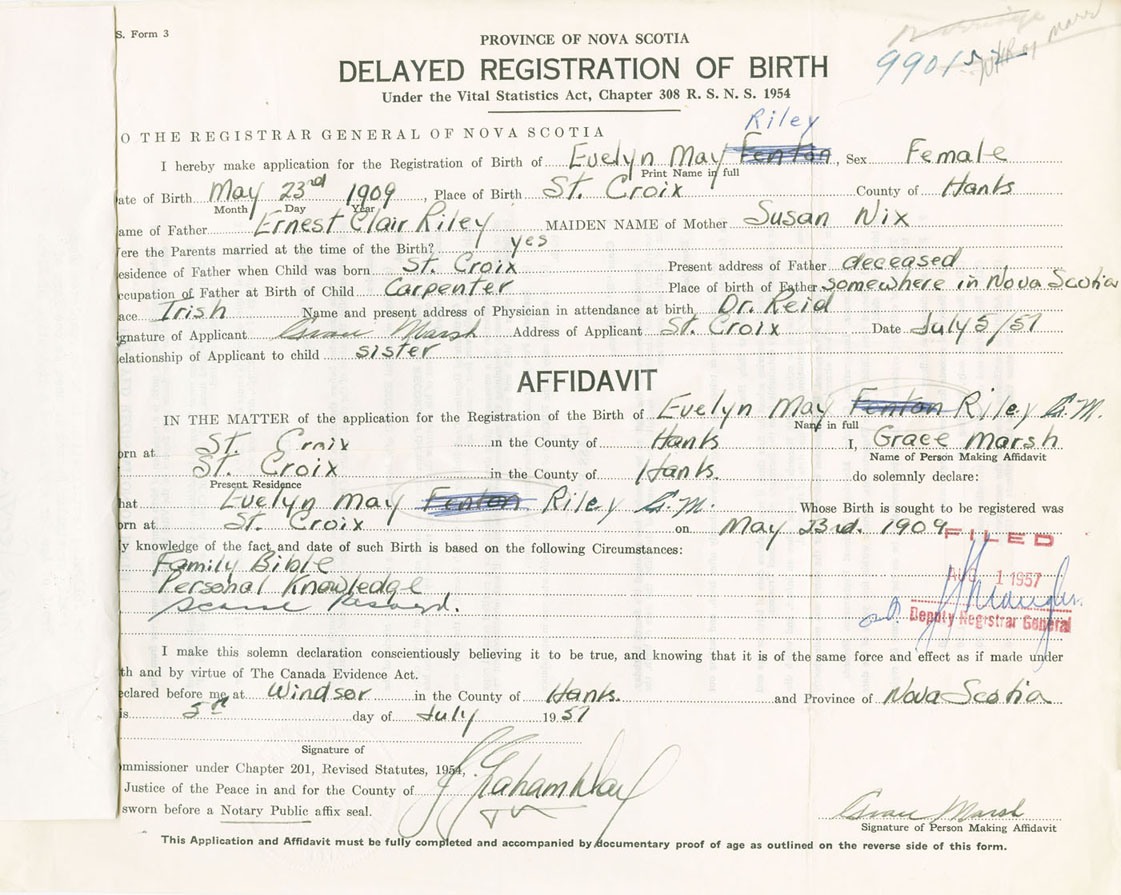 S. Form 3
PROVINCE OF NOVA SCOTIA
9901
DELAYED REGISTRATION OF BIRTH
Under the Vital Statistics Act, Chapter 308 R. S. N. S. 1954
O THE REGISTRAR GENERAL OF NOVA SCOTIA
Riley
I hereby make application for the Registration of Birth of Evelyn May Fenton, Sex Female
Print Name in full
ate of Birth May 23rd 1909, Place of Birth St. Croix County of Hants
Month Day Year
ame of Father Ernest Clair Riley MAIDEN NAME of Mother Susan Nix
ere the Parents married at the time of the Birth? yes
esidence of Father when Child was born St. Croix Present address of Father deceased
ccupation of Father at Birth of Child Carpenter Place of birth of Father somewhere in Nova Scotia
ace Irish Name and present address of Physician in attendance at birth Dr. Reid
gnature of Applicant Grace Marsh Address of Applicant St. Croix Date July 5/57
elationship of Applicant to child sister
AFFIDAVIT
IN THE MATTER of the application for the Registration of the Birth of Evelyn May Fenton Riley G.M.
Name in full
orn at St. Croix in the County of Hants I, Grace Marsh
Name of Person Making Affidavit
St. Croix in the County of Hants. do solemnly declare:
Present Residence
hat Evelyn May Fenton Riley G.M. Whose Birth is sought to be registered was
orn at St. Croix on May 23rd. 1909
y knowledge of the fact and date of such Birth is based on the following Circumstances:
FILED
Family Bible
AUG 1 1957
Personal Knowledge
Deputy Registrar General
I make this solemn declaration conscientiously believing it to be true, and knowing that it is of the same force and effect as if made under
th and by virtue of The Canada Evidence Act.
eclared before me at Windsor in the County of Hants. and Province of Nova Scotia
is 5th day of July 1957
Signature of
mmissioner under Chapter 201, Revised Statutes, 1954,
Justice of the Peace in and for the County of
sworn before a Notary Public affix seal.
Grace Marsh
Signature of Person Making Affidavit
This Application and Affidavit must be fully completed and accompanied by documentary proof of age as outlined on the reverse side of this form.